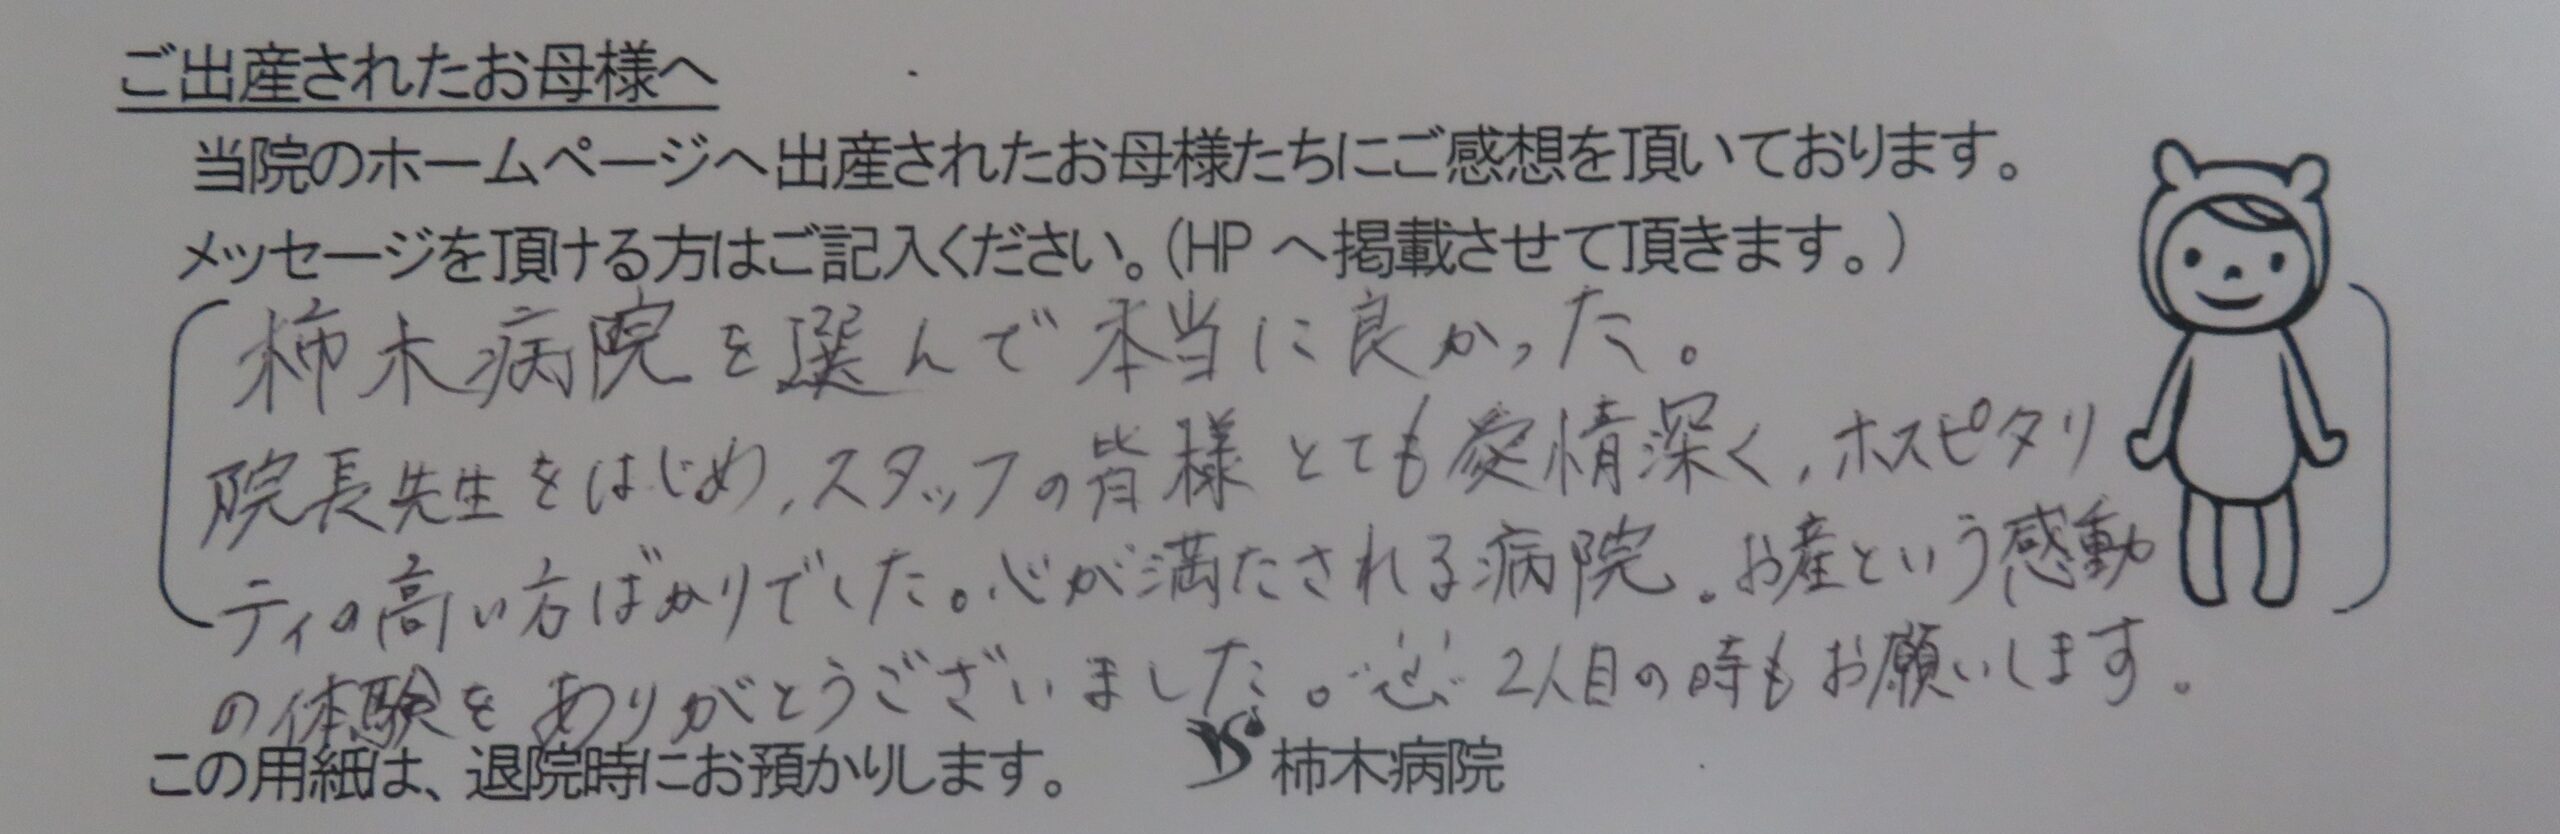 ご出産されたお母様へ
当院のホームページへ出産されたお母様たちにご感想を頂いております。
メッセージを頂ける方はご記入ください。（HPへ掲載させて頂きます。）
柿木病院を選んで本当に良かった。
院長先生をはじめ、スタッフの皆様とても愛情深く、ホスピタリ
ティの高い方ばかりでした。心が満たされる病院。お産という感動
の体験をありがとうございました。2人目の時もお願いします。
この用紙は、退院時にお預かりします。 柿木病院